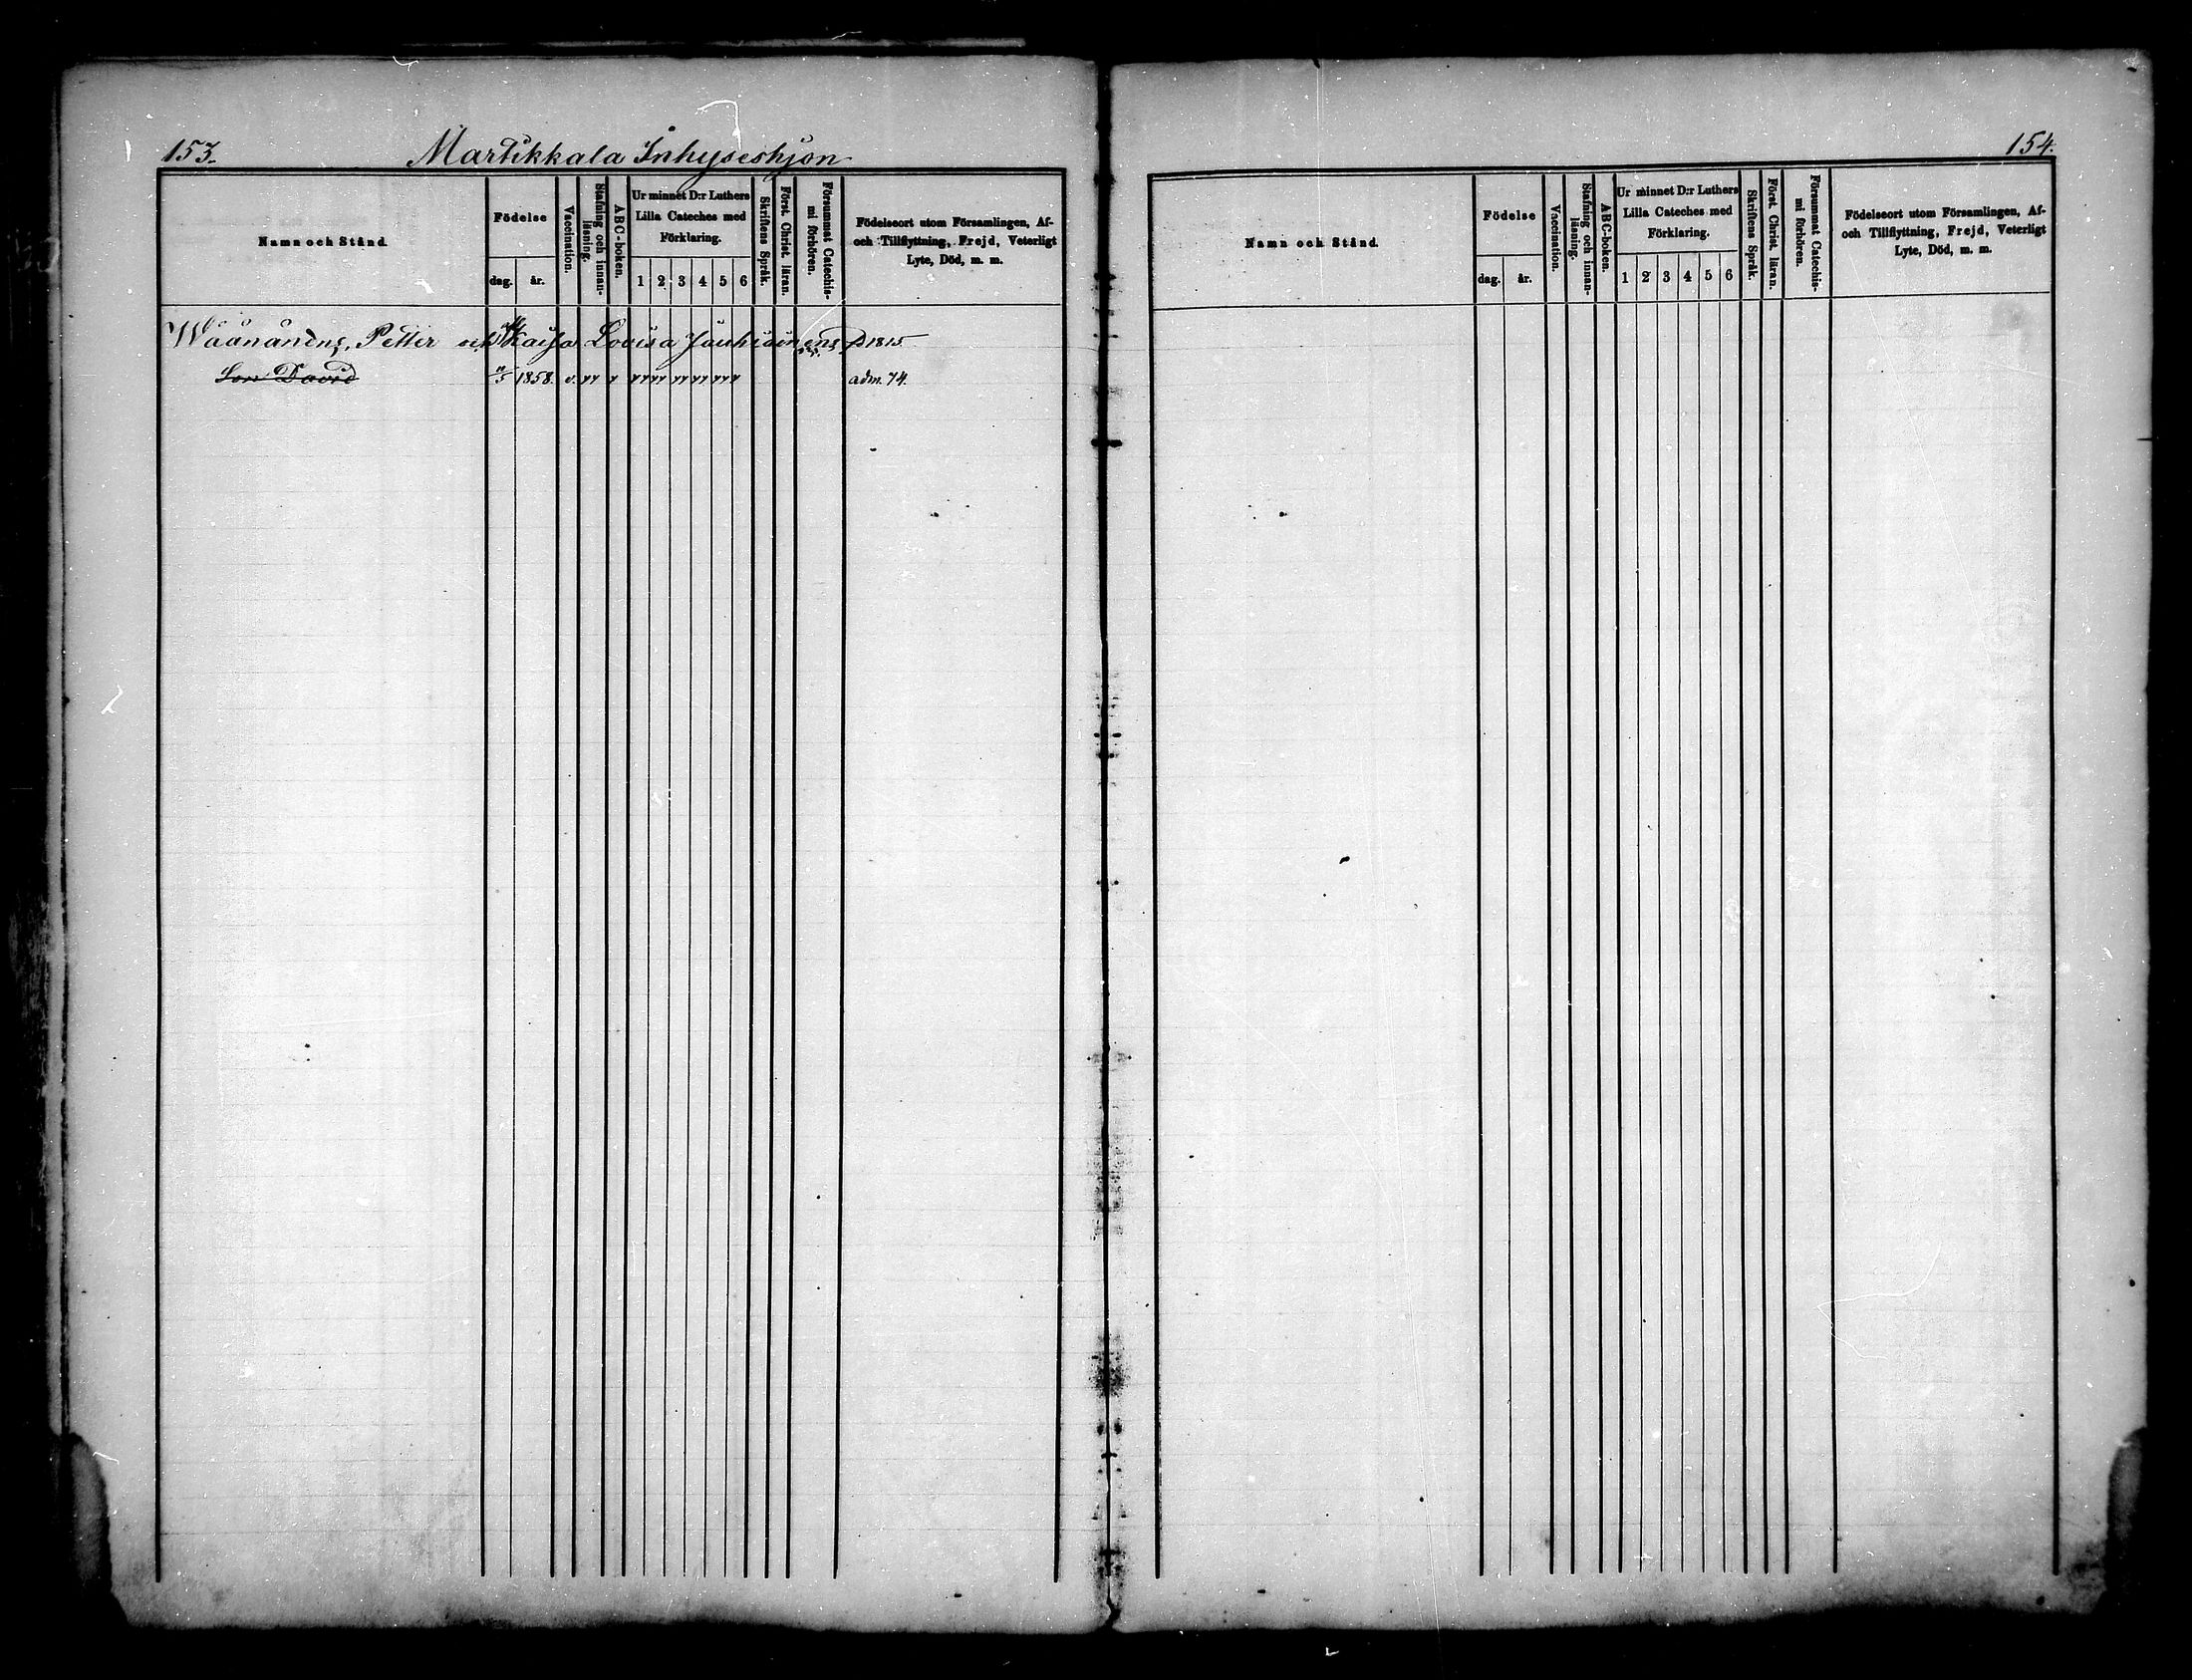 153.
Martikkala Inhyseshjon
Namn och Stånd.
Födelse
dag.
år.
Vaccination.
Stafning och innanläsning.
ABC-boken.
Ur minnet D:r Luthers
Lilla Cateches med
Förklaring.
1 2 3 4 5 6
Skriftens Språk.
Först. Christ. läran.
Försummat Catechismi förhören.
Födelseort utom Församlingen, Af-
och Tillflyttning, Frejd, Veterligt
Lyte, Död, m. m.
Petter och Kaisa Lovisa 1815
Son David 1858. v. adm. 74.
154.
Namn och Stånd.
Födelse
dag.
år.
Vaccination.
Stafning och innanläsning.
ABC-boken.
Ur minnet D:r Luthers
Lilla Cateches med
Förklaring.
1 2 3 4 5 6
Skriftens Språk.
Först. Christ. läran.
Försummat Catechismi förhören.
Födelseort utom Församlingen, Af-
och Tillflyttning, Frejd, Veterligt
Lyte, Död, m. m.